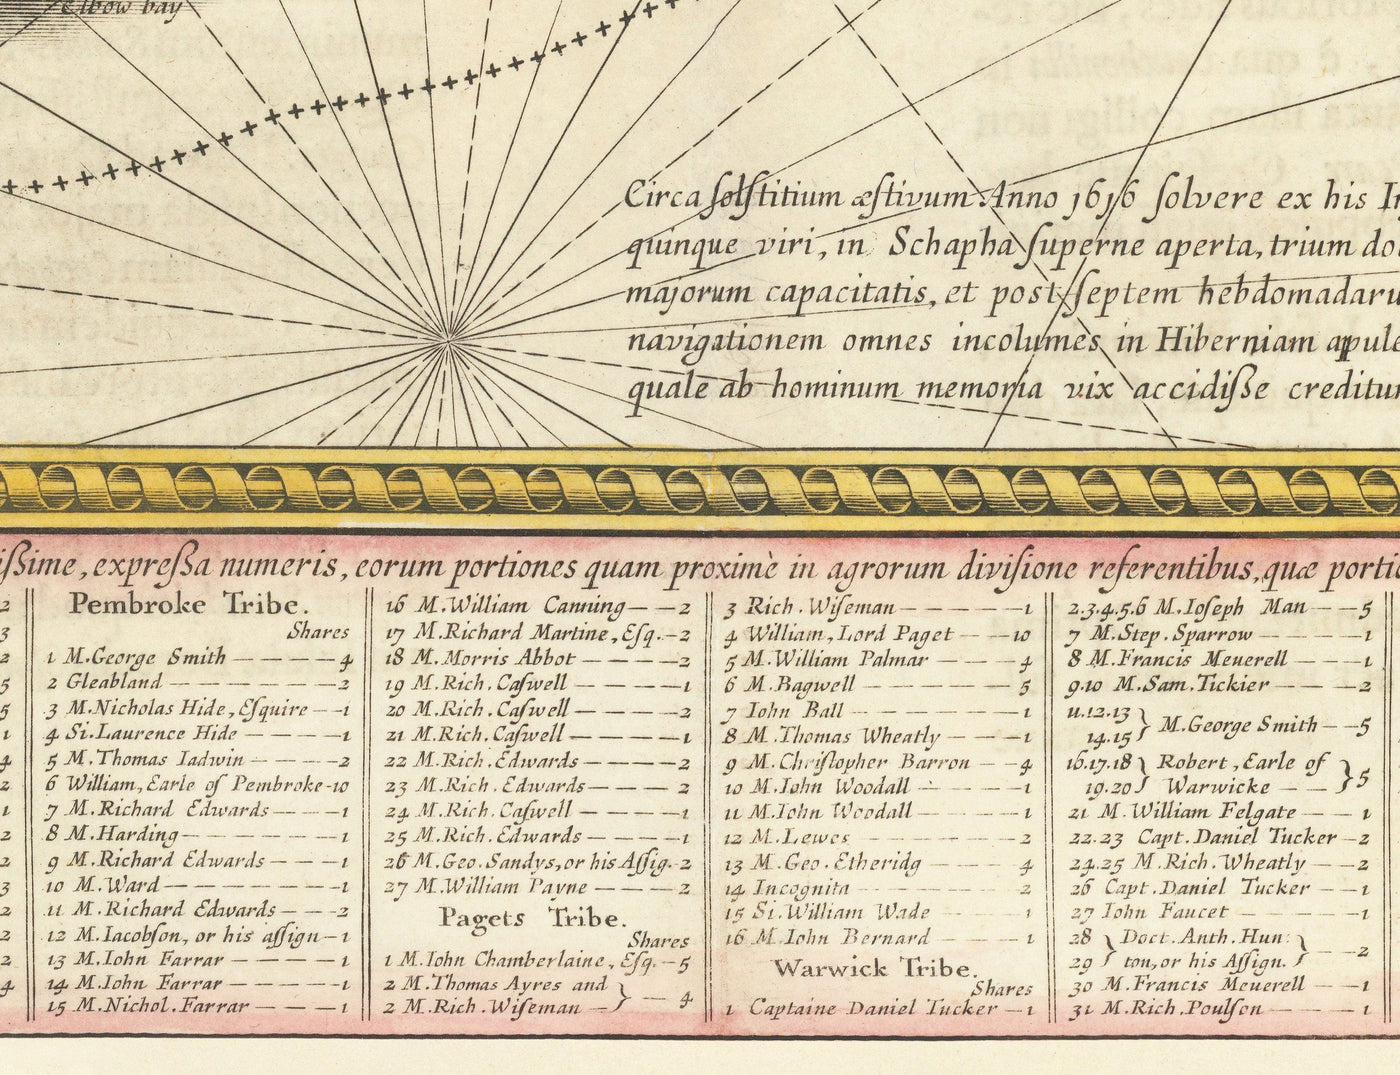 Elbow bay
Circa solstitium æstivum Anno 1616 solvere ex his In
quinque viri, in Schapha superne aperta, trium dol
majorum capacitatis, et post septem hebdomadaru
navigationem omnes incolumes in Hiberniam apule
quale ab hominum memoria vix accidisse creditur
issime, expressa numeris, eorum portiones quam proximè in agrorum divisione referentibus, quæ portio
2
3
2
5
5
1
4
2
1
2
2
3
2
2
2
4
Pembroke Tribe.
Shares
1 M. George Smith — — — — 4
2 Gleabland — — — — — — 2
3 M. Nicholas Hide, Esquire — — 1
4 Si. Laurence Hide — — — — 1
5 M. Thomas Iadwin — — — — 2
6 William, Earle of Pembroke - 10
7 M. Richard Edwards — — — 1
8 M. Harding — — — — — — 1
9 M. Richard Edwards — — — 1
10 M. Ward — — — — — — — 1
11 M. Richard Edwards — — - 2
12 M. Iacobson, or his assign — 1
13 M. Iohn Farrar — — — — 1
14 M. Iohn Farrar — — — — 1
15 M. Nichol. Farrar — — — — 1
16 M. William Canning — — 2
17 M. Richard Martine, Esq. — 2
18 M. Morris Abbot — — — — 2
19 M. Rich. Caswell — — — — 1
20 M. Rich. Caswell — — — — 2
21 M. Rich. Caswell — — — — 1
22 M. Rich. Edwards — — — — 2
23 M. Rich. Edwards — — — — 2
24 M. Rich. Caswell — — — — 1
25 M. Rich. Edwards — — — — 1
26 M. Geo. Sandys, or his Assig. 2
27 M. William Payne — — — 2
Pagets Tribe.
Shares
1 M. Iohn Chamberlaine, Esq. — 5
2 M. Thomas Ayres and
2 M. Rich. Wiseman — } — 4
3 Rich. Wiseman — — — — — 1
4 William, Lord Paget — — 10
5 M. William Palmar — — — 4
6 M. Bagwell — — — — — 5
7 Iohn Ball — — — — — — 1
8 M. Thomas Wheatly — — — 1
9 M. Christopher Barron — — 4
10 M. Iohn Woodall — — — — 1
11 M. Iohn Woodall — — — — 1
12 M. Lewes — — — — — — 2
13 M. Geo. Etheridg — — — — 4
14 Incognita — — — — — — 2
15 Si. William Wade — — — 1
16 M. Iohn Bernard — — — — 1
Warwick Tribe.
Shares
1 Captaine Daniel Tucker — 1
2.3.4.5.6 M. Ioseph Man — — 5
7 M. Step. Sparrow — — — — 1
8 M. Francis Meuerell — — — 1
9.10 M. Sam. Tickier — — — 2
11.12.13
14.15 } M. George Smith — — 5
16.17.18 } Robert, Earle of
19.20 } Warwicke — — } 5
21 M. William Felgate — — — 1
22.23 Capt. Daniel Tucker — 2
24.25 M. Rich. Wheatly — — 2
26 Capt. Daniel Tucker — — 1
27 Iohn Faucet — — — — — 1
28 } Doct. Anth. Hun:
29 } ton, or his Assign. } — — 2
30 M. Francis Meuerell — — 1
31 M. Rich. Poulson — — — — 1